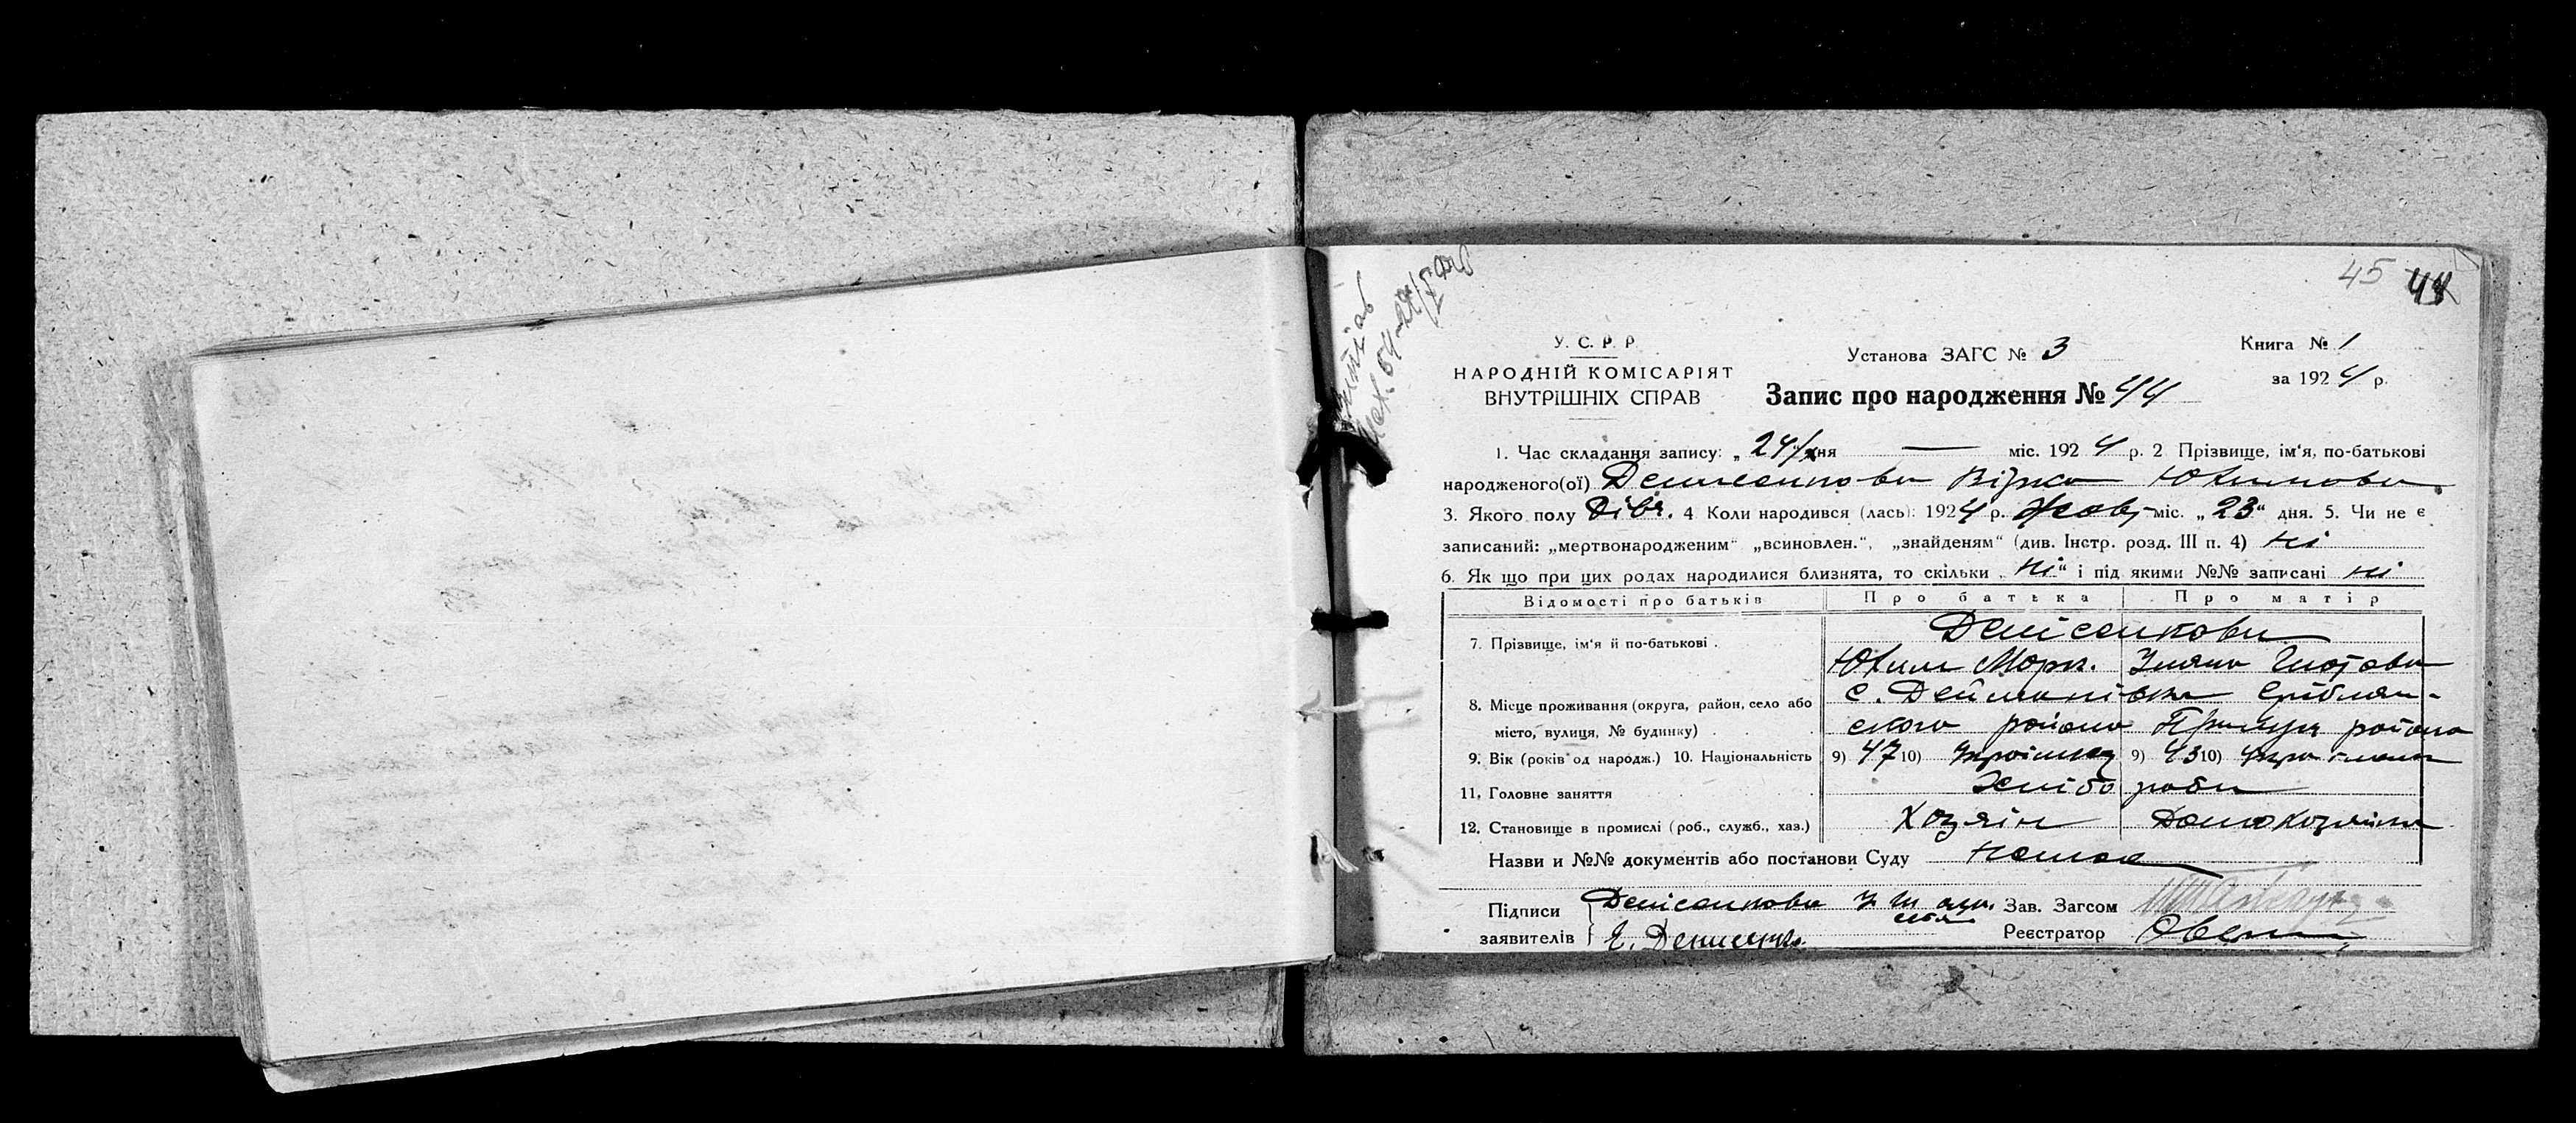 45 44
У. С. Р. Р.
НАРОДНІЙ КОМІСАРІЯТ
ВНУТРІШНІХ СПРАВ
Установа ЗАГС № 3
Запис про народження № 44
Книга № 1
за 1924 р.
1. Час складання запису: „24/X дня — міс. 1924 р. 2 Прізвище, ім'я, по-батькові
народженого(ої) Денисенкова Вірка Юхимова
3. Якого полу Дівч. 4 Коли народився (лась): 1924 р. Жовт міс. „23“ дня. 5. Чи не є
записаний: „мертвонародженим“ „всиновлен.“, „знайденям“ (див. Інстр. розд. III п. 4) ні
6. Як що при цих родах народилися близнята, то скільки „ні“ і під якими №№ записані ні
Відомості про батьків Про батька Про матір
7. Прізвище, ім'я й по-батькові . Денісенкови
Юхим Марк. Уляна
8. Місце проживання (округа, район, село або с. Дейманівка Сріблян-
місто, вулиця, № будинку) . . ского района Прилук района
9. Вік (років од народж.) 10. Національність 9) 47 10) Українец 9) 43 10) Українка
11. Головне заняття Хлібороби
12. Становище в промислі (роб., служб., хаз.) Хозяін Домохозяйка
Назви и №№ документів або постанови Суду Немає
Підписи Денісенкова
заявителів Денисенко
Зав. Загсом
Реєстратор